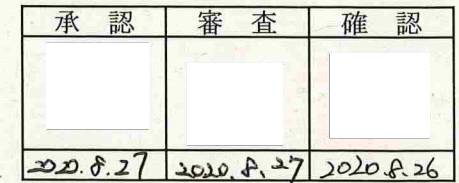 承認 審査 確認
2020.8.27 2020.8.27 2020.8.26